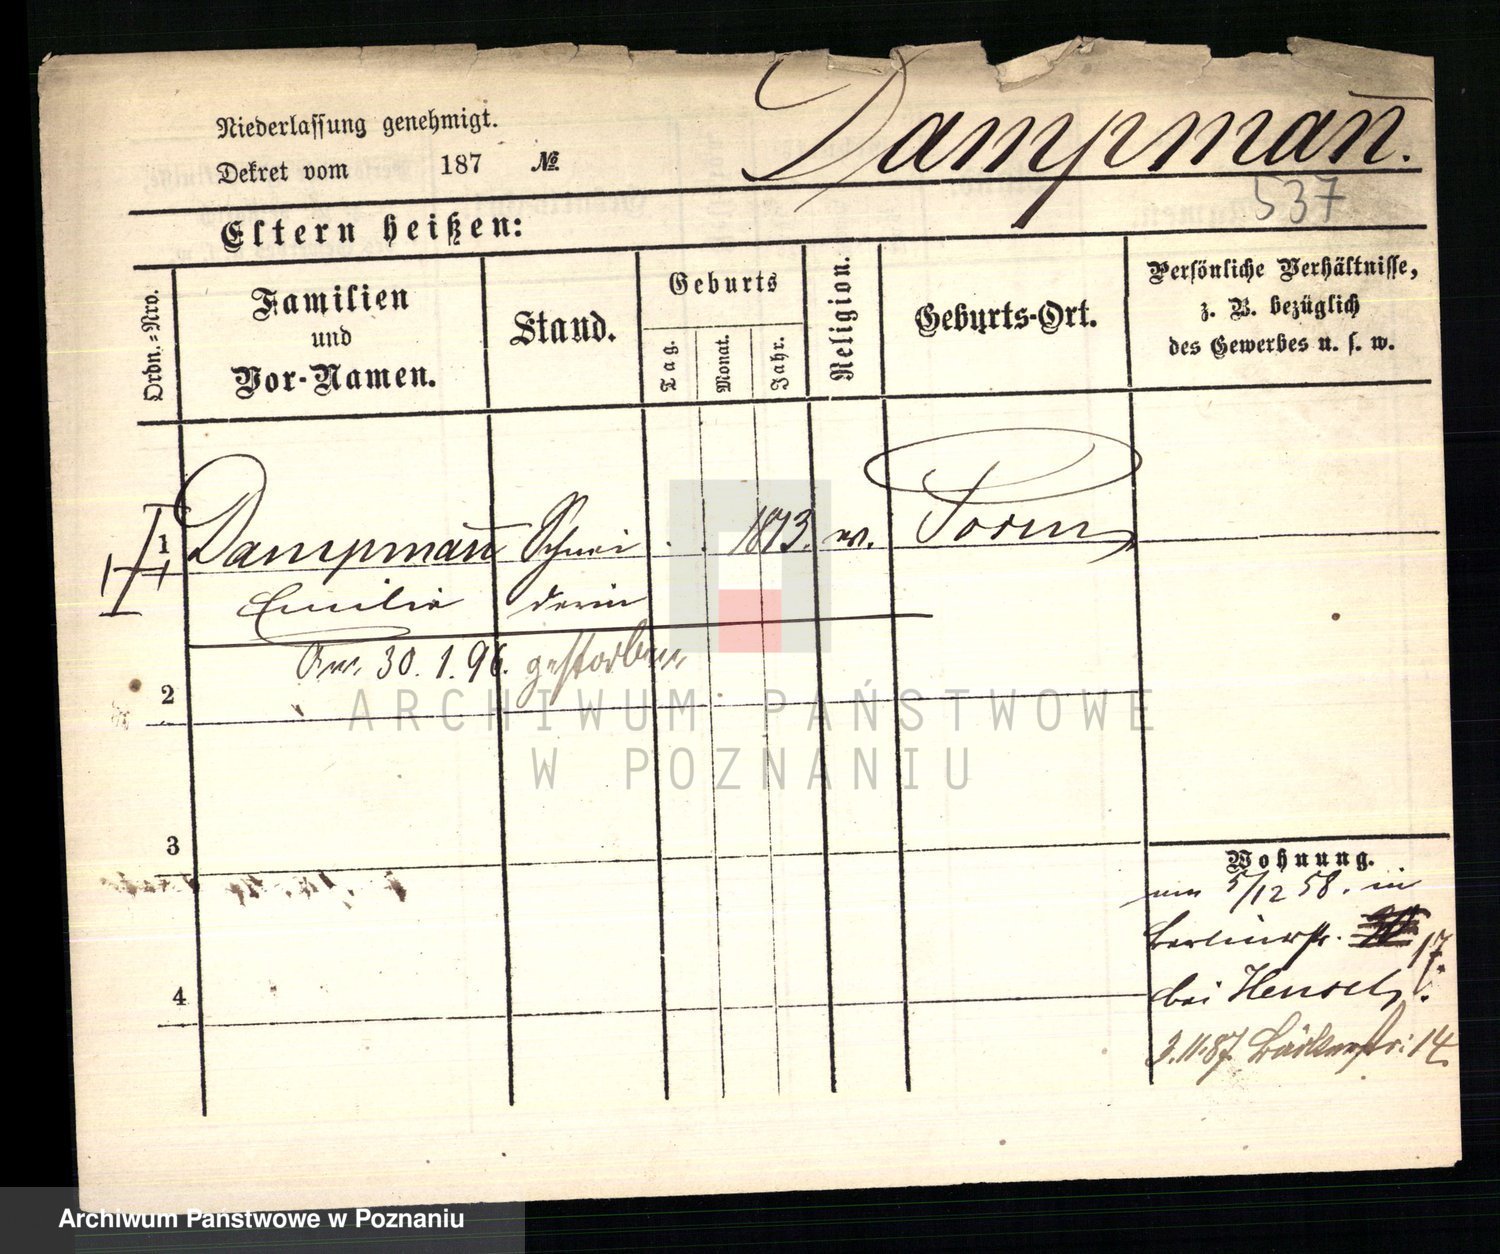 Niederlassung genehmigt.
Dekret vom 187 №
Dampman̄.
537
Eltern heißen:
Ordn.-Nro.
Familien
und
Vor-Namen.
Stand.
Geburts
Tag.
Monat.
Jahr.
Religion.
Geburts-Ort.
Persönliche Verhältnisse,
z. B. bezüglich
des Gewerbes u. s. w.
1 Dampman̄ Schnei . . 1873. ev. Posen
Emilie derin
Am 30.1.96. gestorben
2
3
4
Wohnung.
5/12 58. in
Berlinerstr. 17.
bei Hensel.
3.11.87. Bäckerstr: 14.
ARCHIWUM PAŃSTWOWE
W POZNANIU
Archiwum Państwowe w Poznaniu